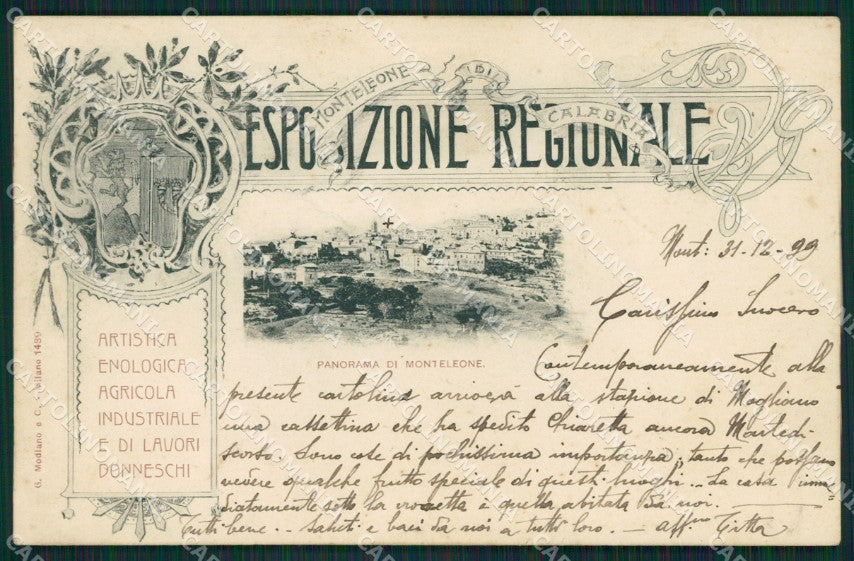 MONTELEONE DI CALABRIA
ESPOSIZIONE REGIONALE
Mont: 31-12-99
Carissimo Suocero
PANORAMA DI MONTELEONE.
ARTISTICA
ENOLOGICA
AGRICOLA
INDUSTRIALE
E DI LAVORI
DONNESCHI
G. Modiano e C. Milano 1439
Contemporaneamente alla
presente cartolina arriverà alla stazione di Mogliano
una cassettina che ha spedito Chiaretta ancora Martedì
scorso. Sono cose di pochissima importanza, tanto che possano
vedere qualche frutto speciale di questi luoghi .. La casa imme=
diatamente sotto la crocetta è quella abitata da noi.
Tutti bene .. Saluti e baci da noi a tutti loro. — aff.mo Titta
CARTOLINOMANIA